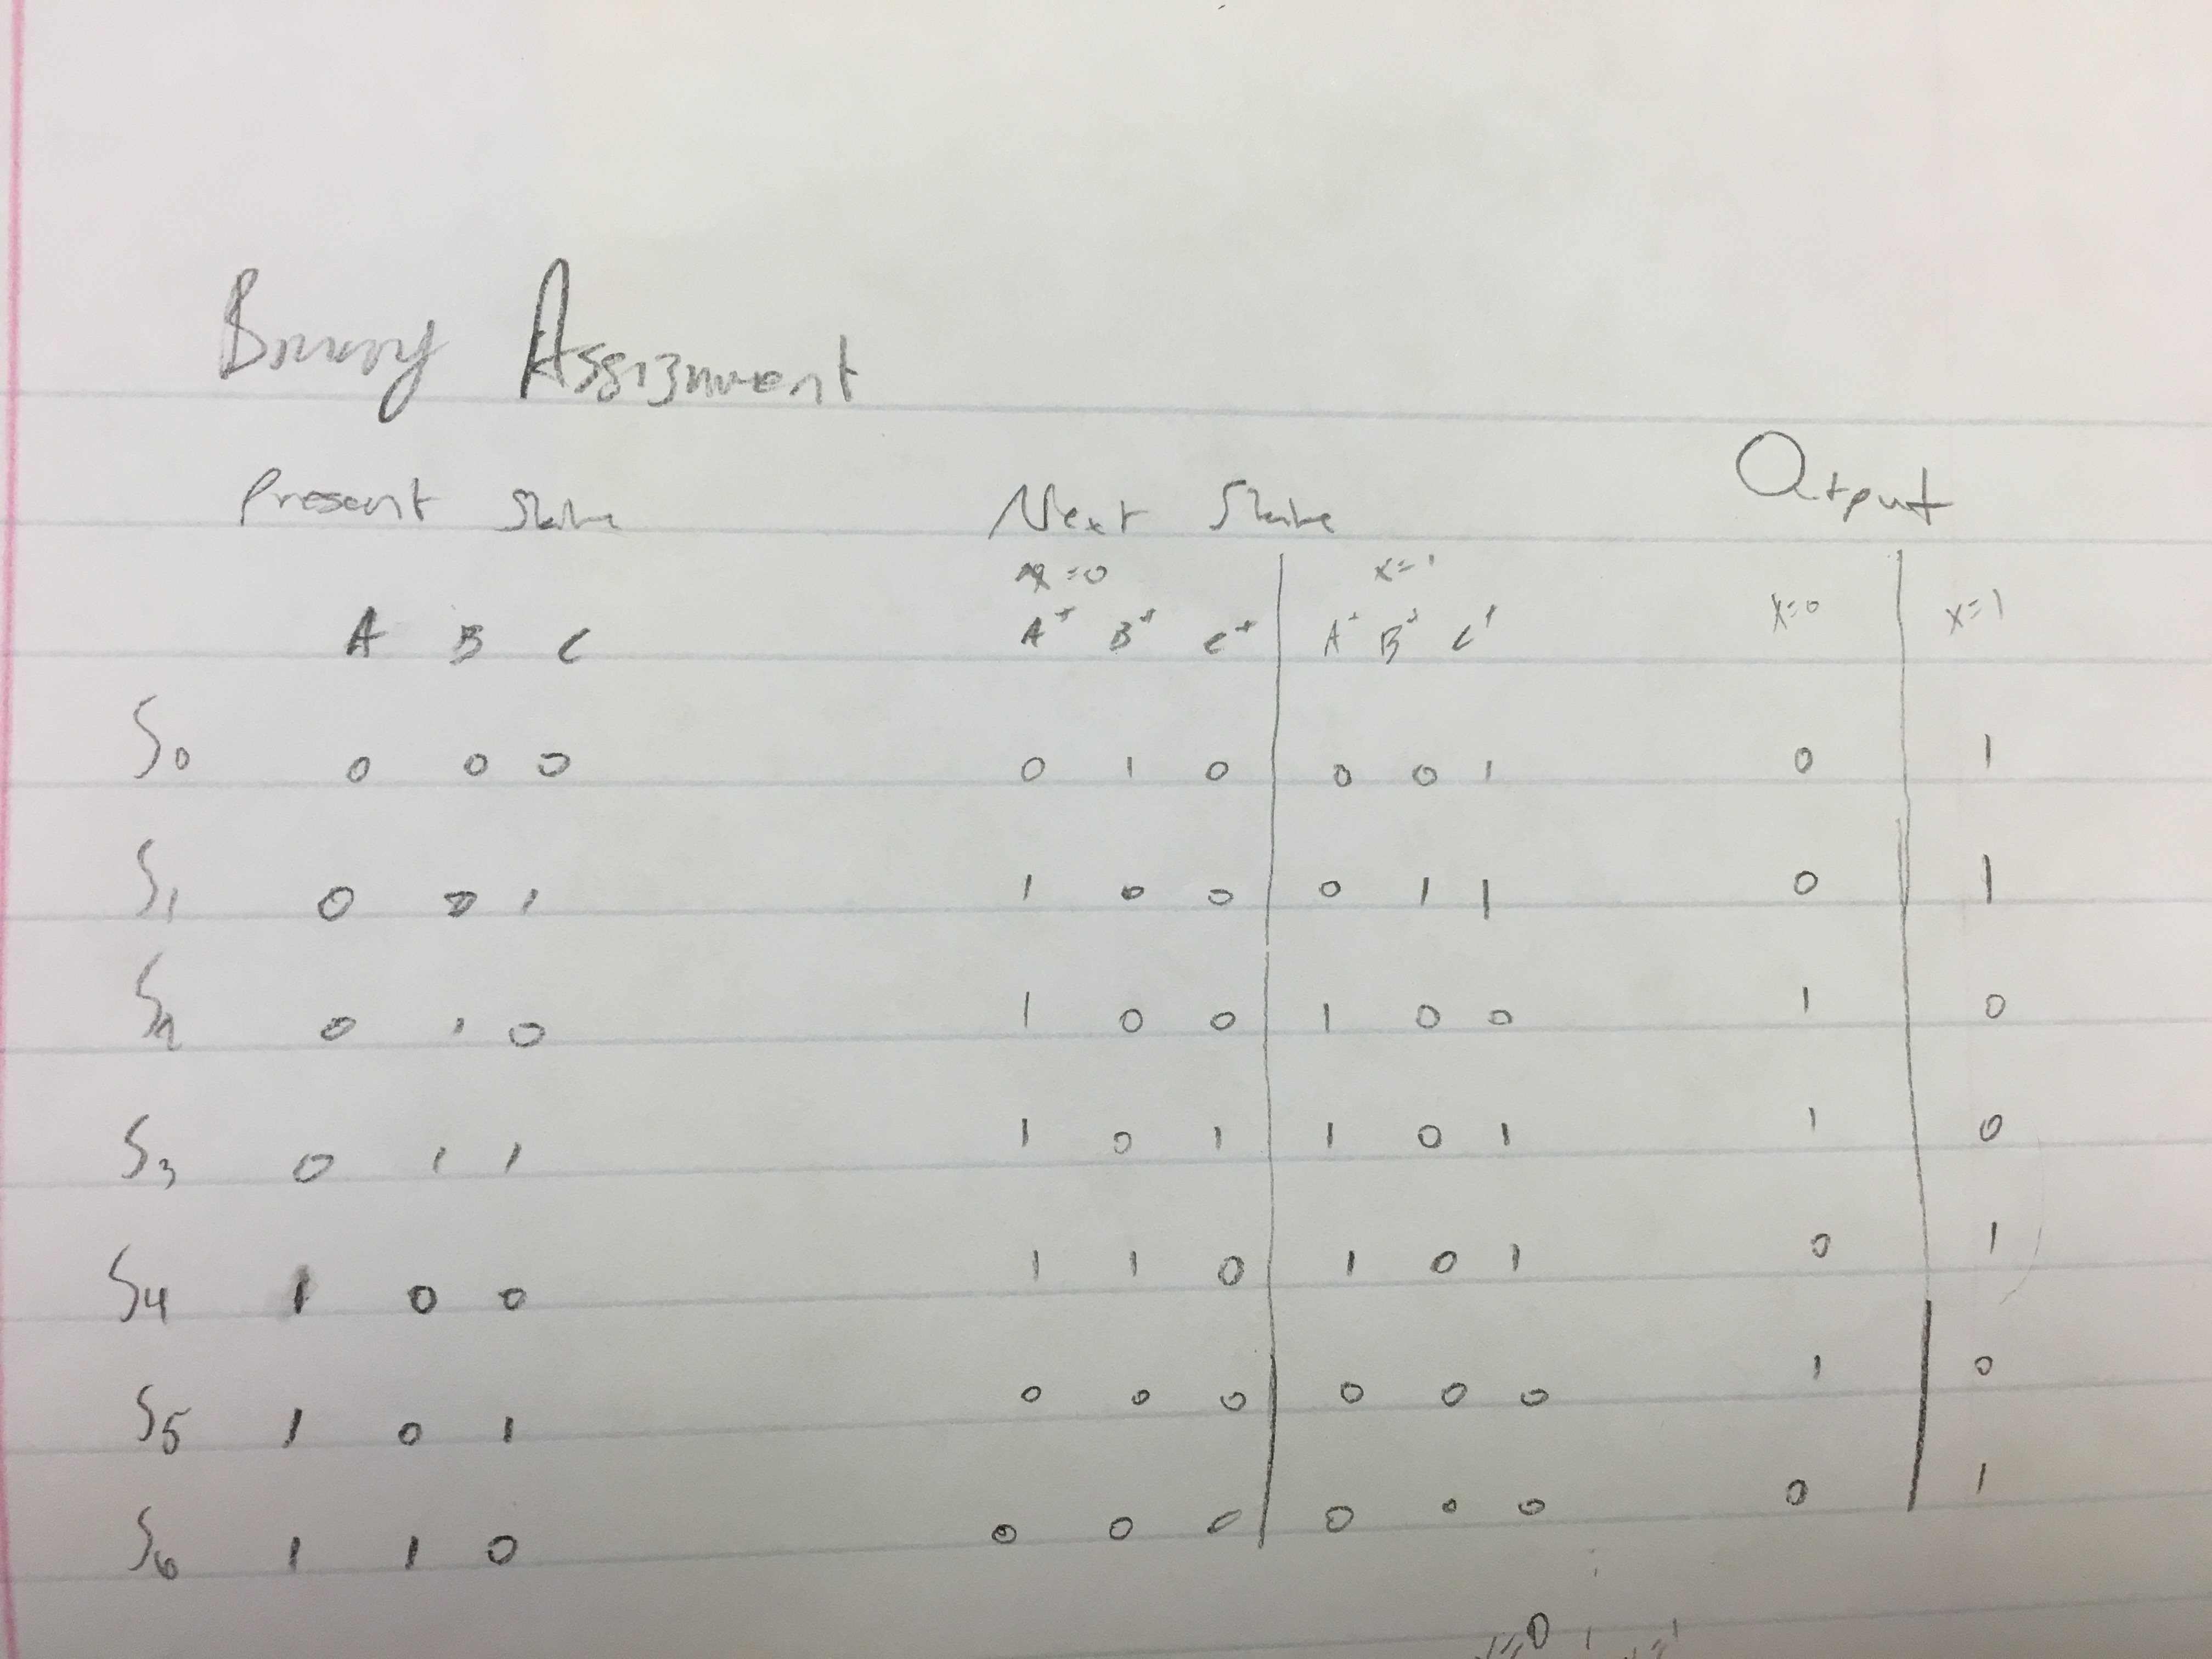 Binary Assignment
Present State Next State Output
x=0 x=1 x=0 x=1
A B C A+ B+ C+ A+ B+ C+
S0 0 0 0 0 1 0 0 0 1 0 1
S1 0 0 1 1 0 0 0 1 1 0 1
S2 0 1 0 1 0 0 1 0 0 1 0
S3 0 1 1 1 0 1 1 0 1 1 0
S4 1 0 0 1 1 0 1 0 1 0 1
S5 1 0 1 0 0 0 0 0 0 1 0
S6 1 1 0 0 0 0 0 0 0 0 1